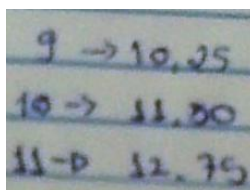 9 → 10.25
10 → 11.50
11 → 12.75